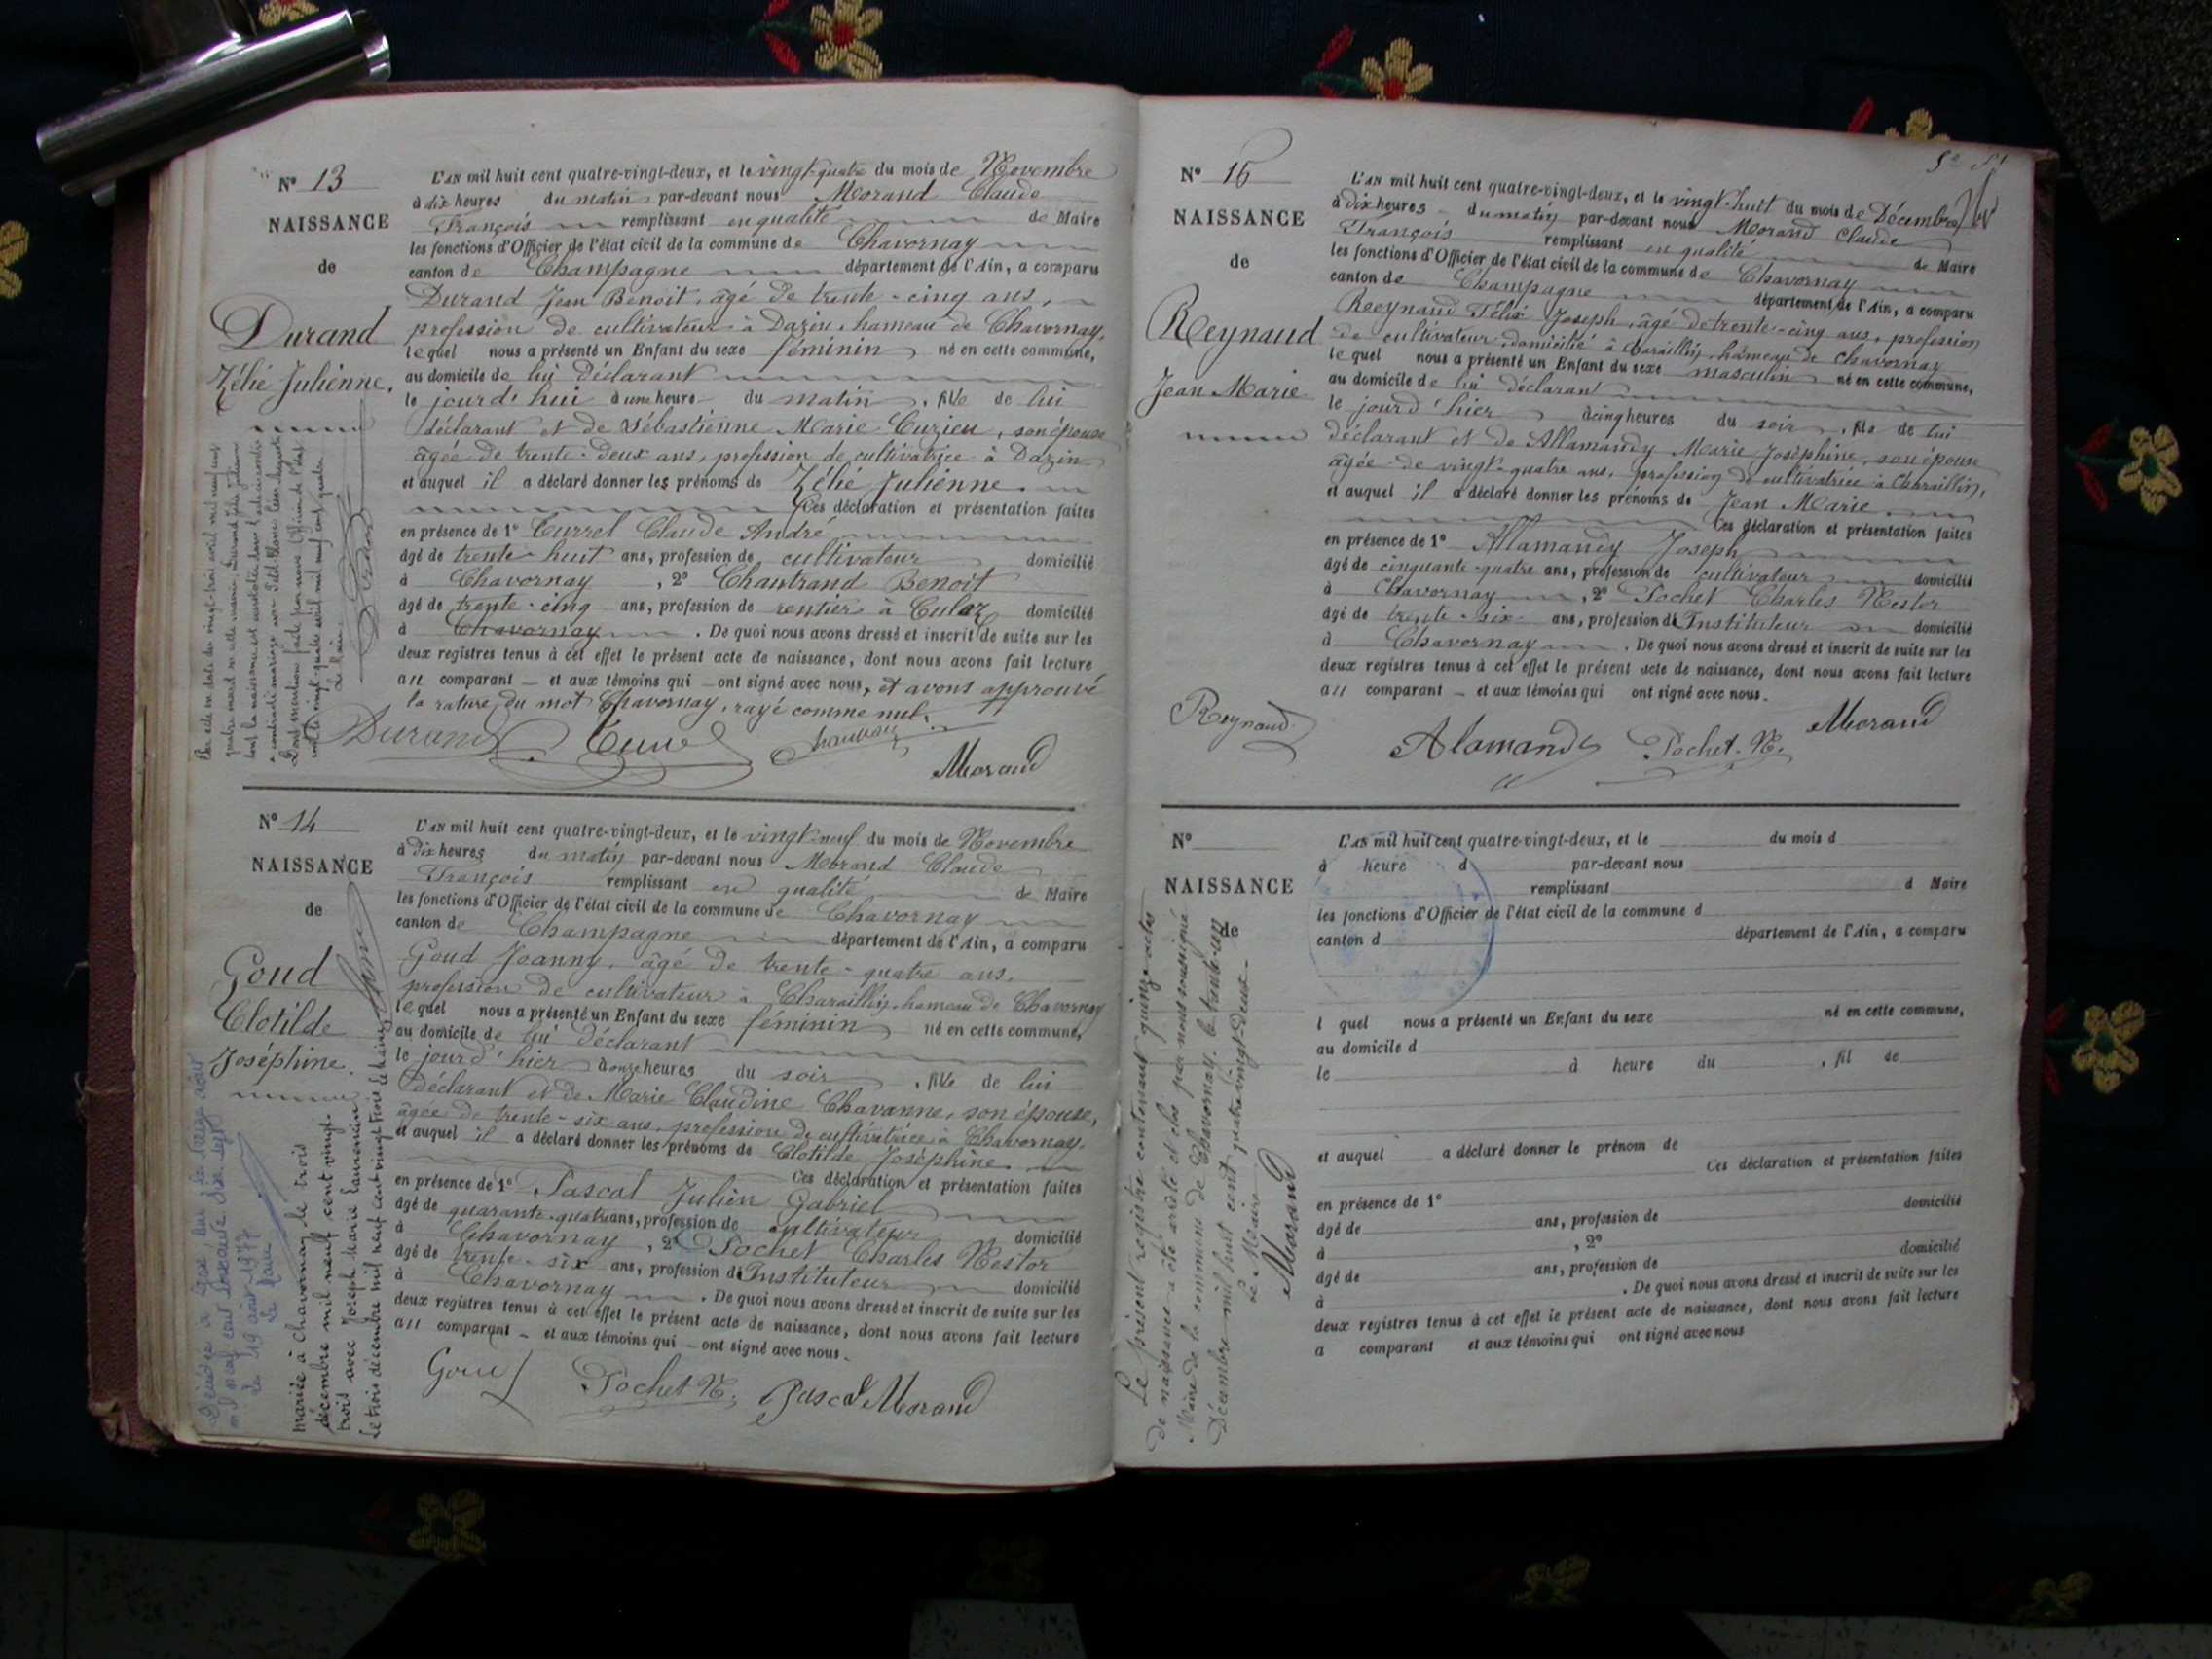 N° 13
NAISSANCE
de
Durand
Zélie Julienne.
L'AN mil huit cent quatre-vingt-deux, et le vingt-quatre du mois de Novembre
à dix heures du matin par-devant nous Morand Claude
François remplissant en qualité de Maire
les fonctions d'Officier de l'état civil de la commune de Chavornay
canton de Champagne département de l'Ain, a comparu
Durand Jean Benoit, âgé de trente-cinq ans,
profession de cultivateur à Dazin, hameau de Chavornay,
lequel nous a présenté un Enfant du sexe féminin né en cette commune,
au domicile de lui déclarant
le jourd'hui à une heure du matin, fille de lui
déclarant et de Sébastienne Marie Cuzieu, son épouse
âgée de trente-deux ans, profession de cultivatrice à Dazin
et auquel il a déclaré donner les prénoms de Zélie Julienne.
Ces déclaration et présentation faites
en présence de 1° Turrel Claude André
âgé de trente-huit ans, profession de cultivateur domicilié
à Chavornay, 2° Chantrand Benoit
âgé de trente-cinq ans, profession de rentier à Culoz domicilié
à Chavornay. De quoi nous avons dressé et inscrit de suite sur les
deux registres tenus à cet effet le présent acte de naissance, dont nous avons fait lecture
au comparant et aux témoins qui ont signé avec nous, et avons approuvé
la rature du mot Chavornay, rayé comme nul.
Durand
Morand
N° 14
NAISSANCE
de
Goud
Clotilde
Joséphine.
L'AN mil huit cent quatre-vingt-deux, et le vingt-neuf du mois de Novembre
à dix heures du matin par-devant nous Morand Claude
François remplissant en qualité de Maire
les fonctions d'Officier de l'état civil de la commune de Chavornay
canton de Champagne département de l'Ain, a comparu
Goud Joanny, âgé de trente-quatre ans,
profession de cultivateur à Charaillin, hameau de Chavornay
lequel nous a présenté un Enfant du sexe féminin né en cette commune,
au domicile de lui déclarant
le jourd'hier à onze heures du soir, fille de lui
déclarant et de Marie Claudine Chavanne, son épouse,
âgée de trente-six ans, profession de cultivatrice à Chavornay,
et auquel il a déclaré donner les prénoms de Clotilde Joséphine.
Ces déclaration et présentation faites
en présence de 1° Pascal Julien Gabriel
âgé de quarante-quatre ans, profession de cultivateur domicilié
à Chavornay, 2° Pochet Charles Nestor
âgé de trente-six ans, profession d'Instituteur domicilié
à Chavornay. De quoi nous avons dressé et inscrit de suite sur les
deux registres tenus à cet effet le présent acte de naissance, dont nous avons fait lecture
au comparant et aux témoins qui ont signé avec nous.
Goud Pochet N. Pascal Morand
mariée à Chavornay le trois
décembre mil neuf cent vingt-
trois avec Joseph Marie
Le trois décembre mil neuf cent vingt trois Le Maire
le 19 août 1977
Le Maire
N° 15
NAISSANCE
de
Reynaud
Jean Marie
L'AN mil huit cent quatre-vingt-deux, et le vingt-huit du mois de Décembre
à dix heures du matin par-devant nous Morand Claude
François remplissant en qualité de Maire
les fonctions d'Officier de l'état civil de la commune de Chavornay
canton de Champagne département de l'Ain, a comparu
Reynaud Félix Joseph, âgé de trente-cinq ans, profession
de cultivateur domicilié à Charaillin, hameau de Chavornay
lequel nous a présenté un Enfant du sexe masculin né en cette commune,
au domicile de lui déclarant
le jourd'hier à cinq heures du soir, fils de lui
déclarant et de Allamandy Marie Joséphine, son épouse
âgée de vingt-quatre ans, profession de cultivatrice à Charaillin,
et auquel il a déclaré donner les prénoms de Jean Marie.
Ces déclaration et présentation faites
en présence de 1° Allamandy Joseph
âgé de cinquante-quatre ans, profession de cultivateur domicilié
à Chavornay, 2° Pochet Charles Nestor
âgé de trente-six ans, profession d'Instituteur domicilié
à Chavornay. De quoi nous avons dressé et inscrit de suite sur les
deux registres tenus à cet effet le présent acte de naissance, dont nous avons fait lecture
au comparant et aux témoins qui ont signé avec nous.
Reynaud Alamandy Pochet N. Morand
N°
NAISSANCE
de
L'AN mil huit cent quatre-vingt-deux, et le du mois d
à heure d par-devant nous
remplissant d Maire
les fonctions d'Officier de l'état civil de la commune d
canton d département de l'Ain, a comparu
l quel nous a présenté un Enfant du sexe né en cette commune,
au domicile d
le à heure du , fil de
et auquel a déclaré donner le prénom de
Ces déclaration et présentation faites
en présence de 1° domicilié
âgé de ans, profession de
à , 2°
âgé de ans, profession de domicilié
à . De quoi nous avons dressé et inscrit de suite sur les
deux registres tenus à cet effet le présent acte de naissance, dont nous avons fait lecture
a comparant et aux témoins qui ont signé avec nous
Le présent registre contenant quinze actes
de naissance a été arrêté et clos par nous soussigné
Maire de la commune de Chavornay, le trente-un
Décembre mil huit cent quatre-vingt-deux.
Le Maire
Morand